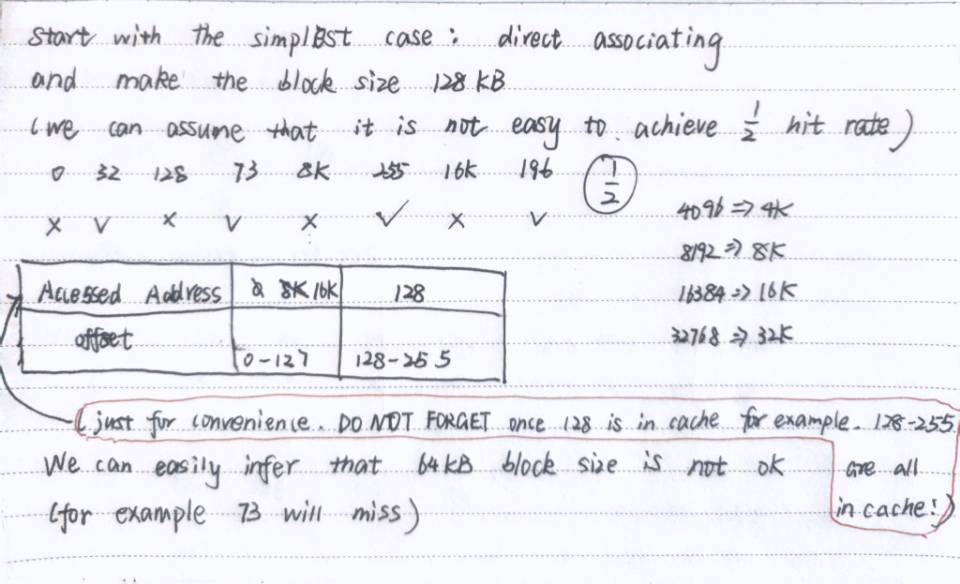 start with the simplest case : direct associating
and make the block size 128 KB
(we can assume that it is not easy to achieve 1/2 hit rate)
0 32 128 73 8K 255 16K 196 1/2
x v x v x ✓ x v
4096 => 4K
8192 => 8K
16384 => 16K
32768 => 32K
Accessed Address 8K 16K 128
offset 0-127 128-255
(just for convenience. DO NOT FORGET once 128 is in cache for example. 128-255
are all
in cache!)
We can easily infer that 64KB block size is not ok
(for example 73 will miss)